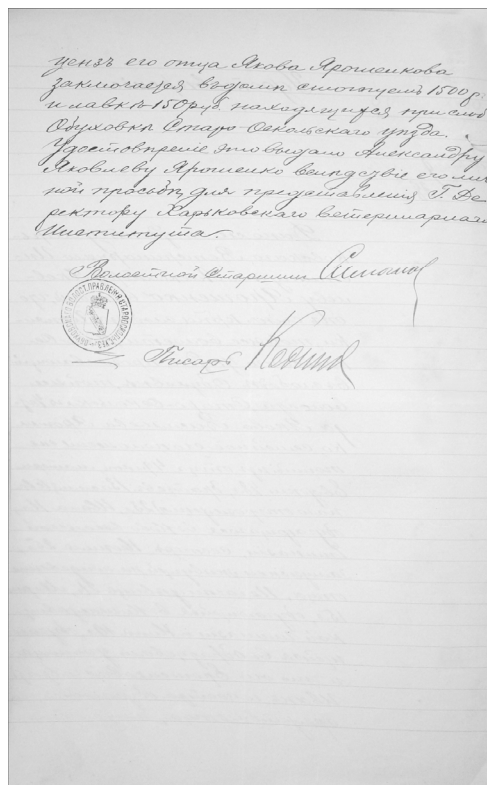 цензъ его отца Якова Ярошенкова
заключается въ домѣ стоющемъ 1500 р.
и лавкѣ 150 руб. находящихся при слоб
Обуховкѣ Старо-Оскольскаго уѣзда.
Удостовѣреніе это выдано Александру
Яковлеву Ярошенко вслѣдствіе его лич
ной просьбѣ, для представленія Г. Ди
ректору Харьковскаго ветеринарнаго
Института.
Волостной Старшина
Писарь